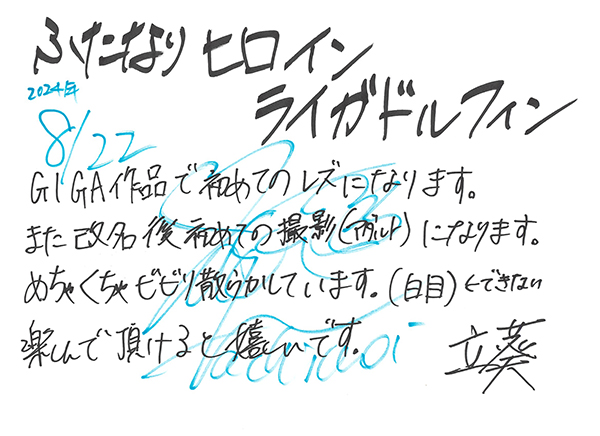 ふたなりヒロイン
ライガドルフィン
2024年
8/22
GIGA作品で初めてのレズになります。
また改名後初めての撮影()になります。
めちゃくちゃビビり散らかしています。(白目)←できない
楽しんで頂けると嬉しいです。
立葵
Tachiaoi